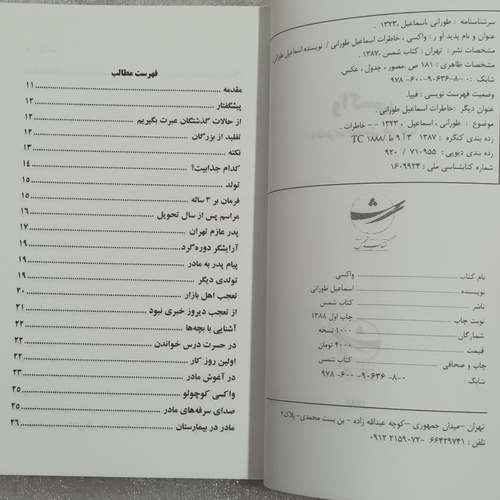 سرشناسنامه : طورانی ،اسماعیل ، ۱۳۲۳ .
عنوان و نام پدید آو ر : واکسی ، خاطرات اسماعیل طورانی / نویسنده اسماعیل طورانی
مشخصات نشر : تهران : کتاب شمس ،۱۳۸۷ .
مشخصات ظاهری : ۱۸۱ ص .مصور ، جدول ، عکس.
شابک : ۹۷۸ -۶۰۰ -۹۰۶۳۶ -۸-۰
وضعیت فهرست نویسی : فیپا.
عنوان دیگر :خاطرات اسماعیل طورانی .
موضوع : طورانی ، اسماعیل ، ۱۳۲۳ - - خاطرات .
رده بندی کنگره : ۱۳۸۷ ۳ آ ۹ ط/ TC ۱۸۸۸
رده بندی دیویی : ۷۱۰۹۵۵ / ۹۲۰
شماره کتابشناسی ملی : ۱۶۰۹۹۲۴
کتاب شمس
نام کتاب ........ واکسی
نویسنده ........ اسماعیل طورانی
ناشر ........ کتاب شمس
نوبت چاپ ........ چاپ اول ۱۳۸۸
شمارگان ........ ۱۰۰۰ نسخه
قیمت ........ ۴۰۰۰ تومان
چاپ و صحافی ........ کتاب شمس
شابک : ........ ۹۷۸ -۶۰۰ -۹۰۶۳۶ -۸-۰
تهران –میدان جمهوری –کوچه عبدالله زاده – بن بست محمدی- پلاک۲
تلفن : ۶۶۴۲۹۷۴۱ -۲۱۵۹۰۷۲ ۰۹۱۲
فهرست مطالب
مقدمه ........ ۱۱
پیشگفتار ........ ۱۲
از حالات گذشتگان عبرت بگیریم ........ ۱۲
تقلید از بزرگان ........ ۱۲
نکته ........ ۱۳
کدام جذابیت؟ ........ ۱۴
تولد ........ ۱۵
فرمان بر ۳ ساله ........ ۱۵
مراسم پس از سال تحویل ........ ۱۶
پدر عازم تهران ........ ۱۷
آرایشگر دوره‌گرد ........ ۱۹
پیام پدر به مادر ........ ۱۹
تولدی دیگر ........ ۱۹
تعجب اهل بازار ........ ۲۰
از تعجب دیروز خبری نبود ........ ۲۱
آشنایی با بچه‌ها ........ ۲۲
در حسرت درس خواندن ........ ۲۲
اولین روز کار ........ ۲۲
در آغوش مادر ........ ۲۳
واکسی کوچولو ........ ۲۵
صدای سرفه‌های مادر ........ ۲۵
مادر در بیمارستان ........ ۲۶